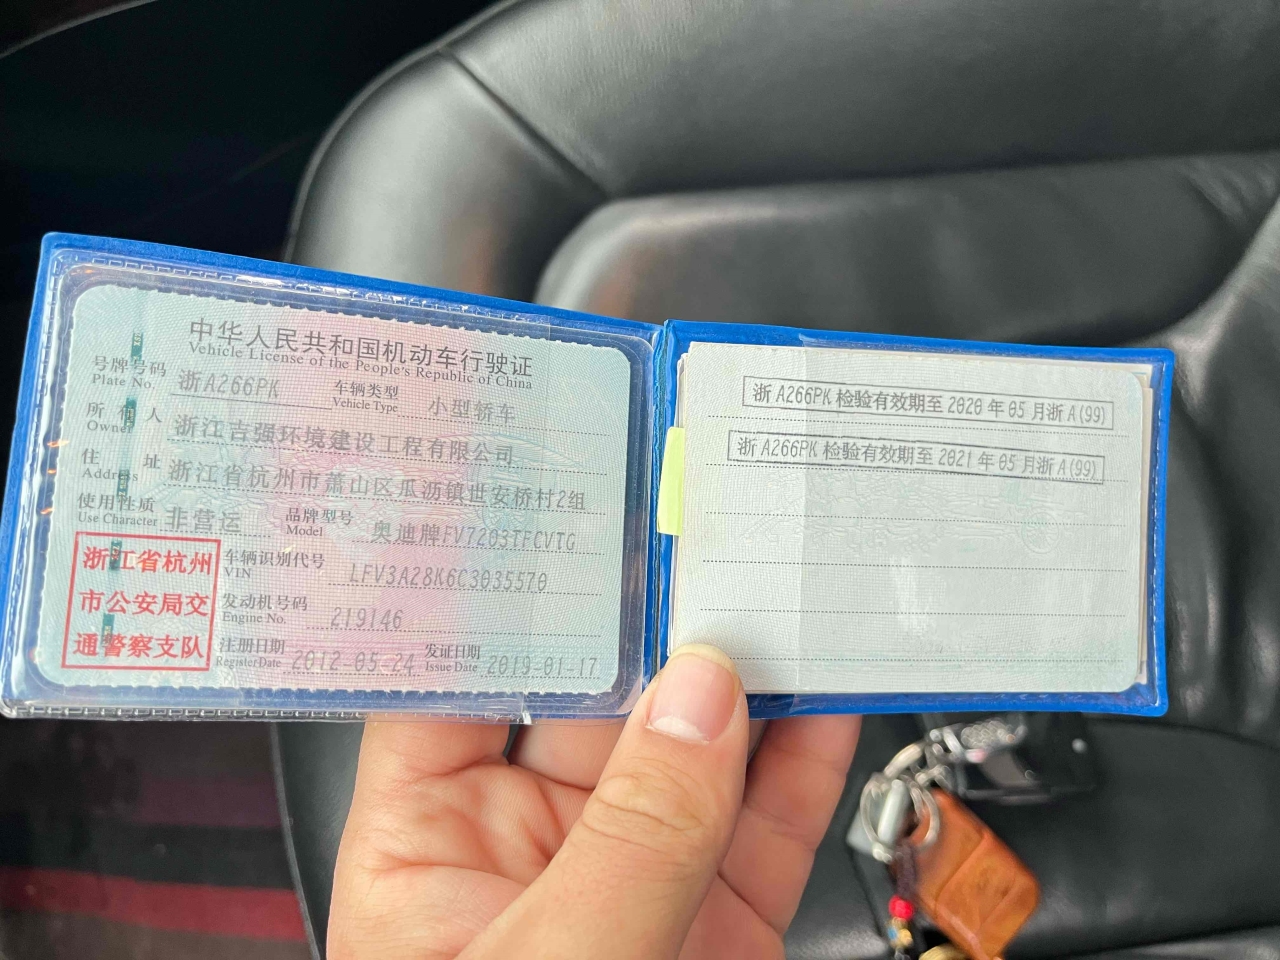 中华人民共和国机动车行驶证
Vehicle License of the People's Republic of China
号牌号码 浙A266PK 车辆类型 小型轿车
Plate No. Vehicle Type
所有人 浙江吉强环境建设工程有限公司
Owner
住址 浙江省杭州市萧山区瓜沥镇世安桥村2组
Address
使用性质 非营运 品牌型号 奥迪牌FV7203TFCVTG
Use Character Model
浙江省杭州
市公安局交
通警察支队
车辆识别代号 LFV3A28K6C3035570
VIN
发动机号码 219146
Engine No.
注册日期 2012-05-24 发证日期 2019-01-17
Register Date Issue Date
浙A266PK检验有效期至2020年05月浙A(99)
浙A266PK检验有效期至2021年05月浙A(99)